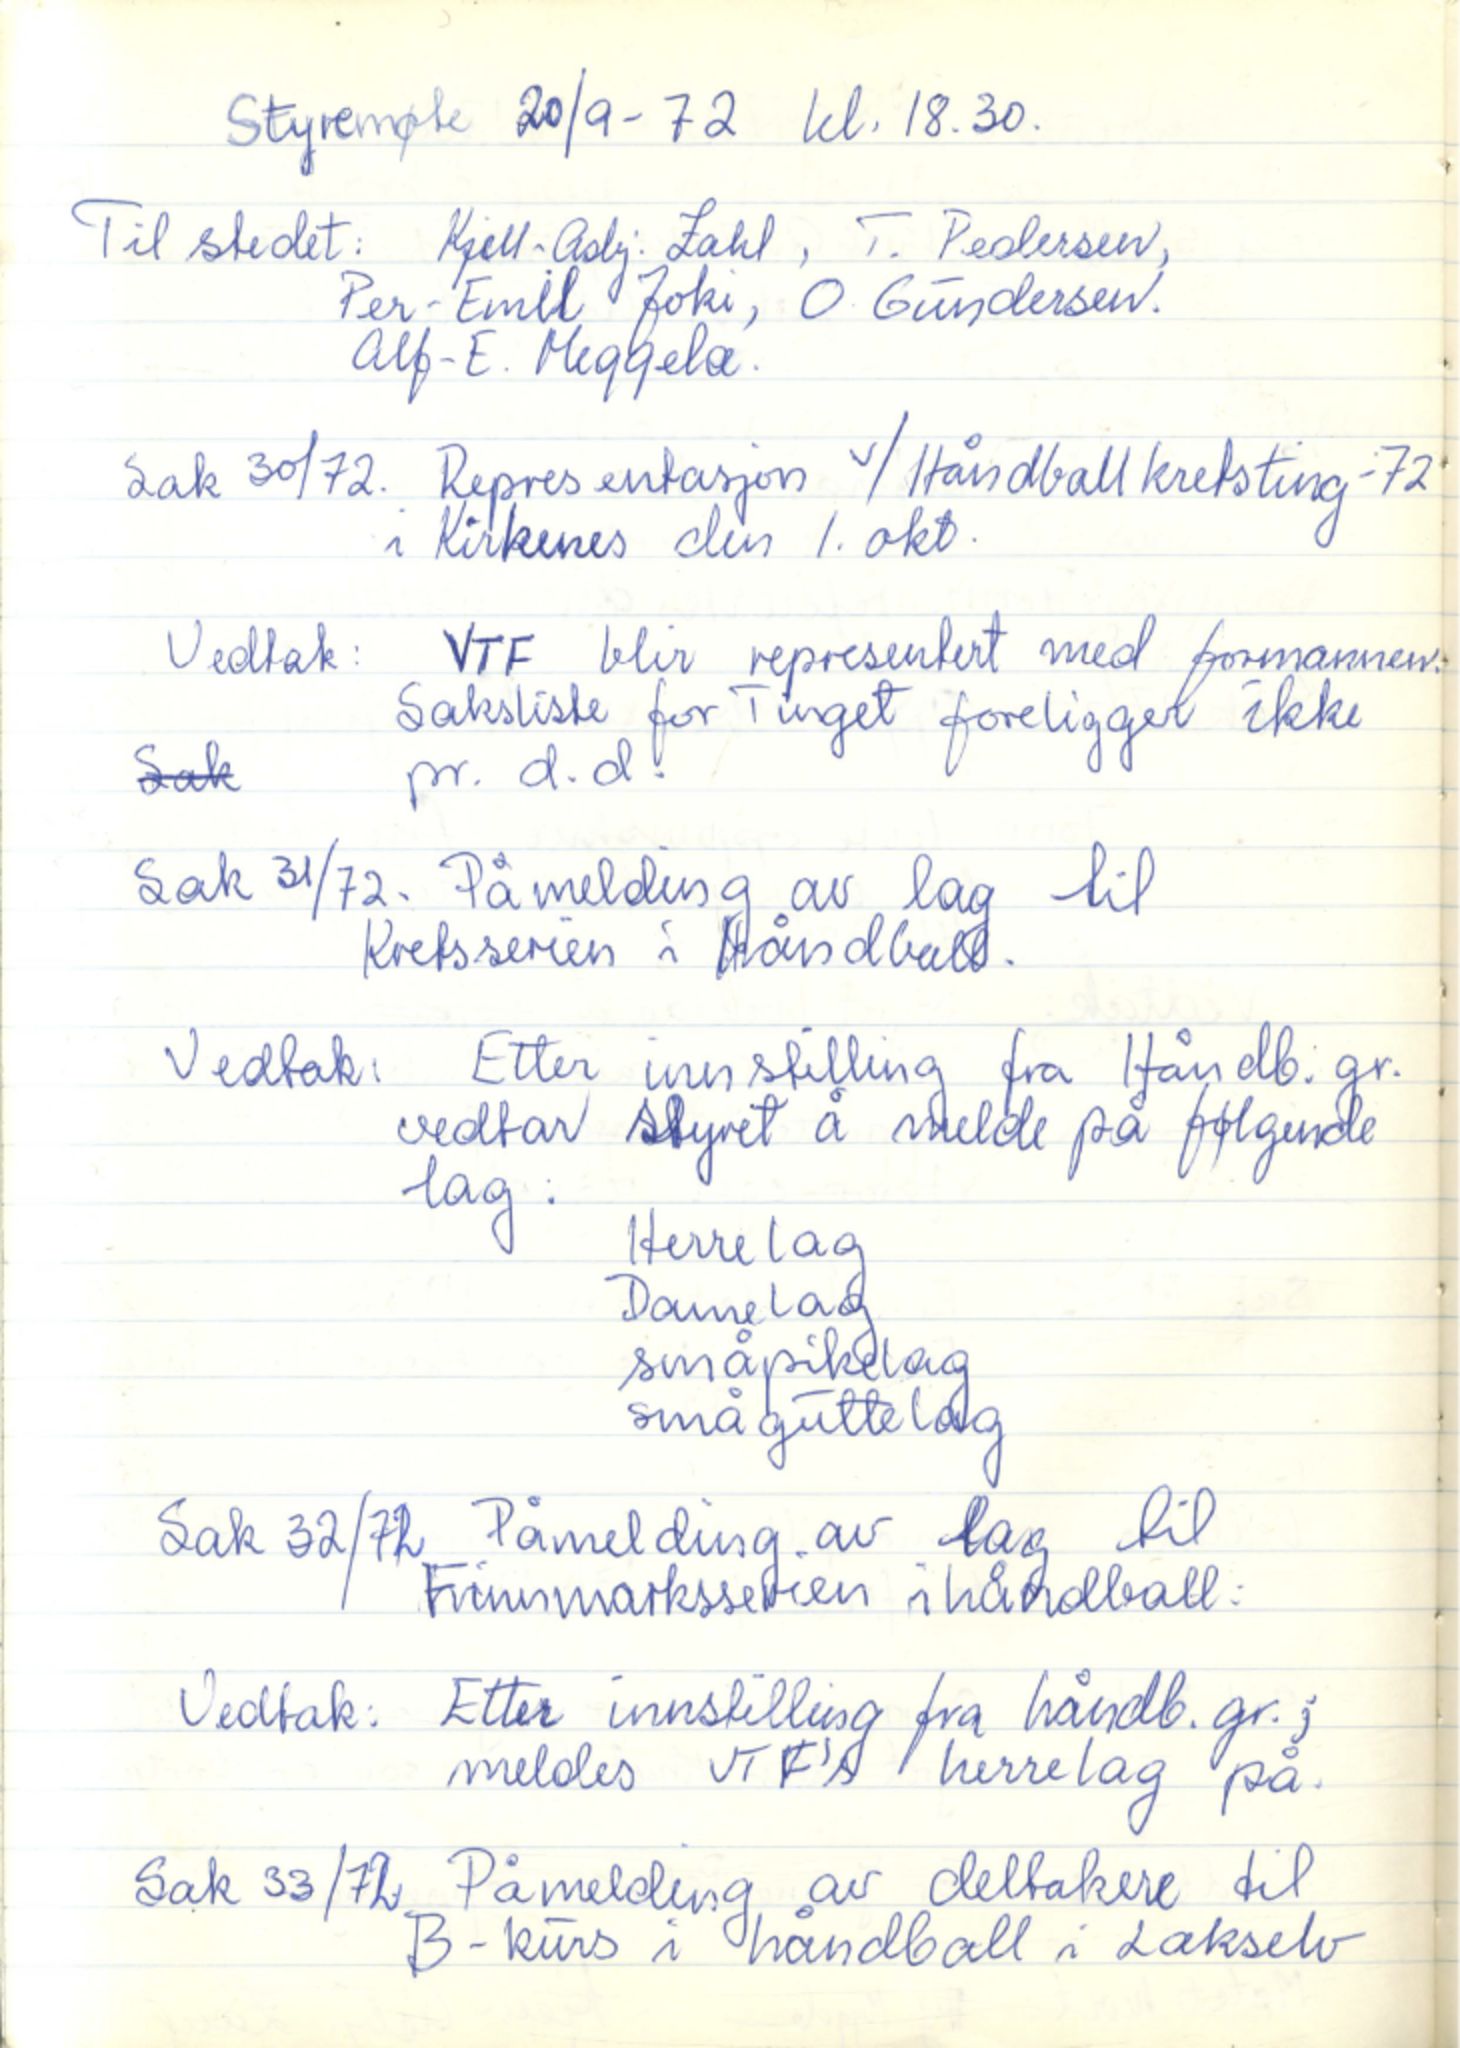 Styremøte 20/9-72 kl. 18.30.
Til stedet: Kjell-Asbj. Zahl, T. Pedersen,
Per-Emil Joki, O. Gundersen.
Alf-E. Meggela.
Sak 30/72. Representasjon v/ Håndballkretsting-72
i Kirkenes den 1. okt.
Vedtak: VTF blir representert med formannen.
Saksliste for Tinget foreligger ikke
Sak pr. d.d.
Sak 31/72. Påmelding av lag til
Kretsserien i Håndball.
Vedtak: Etter innstilling fra Håndb. gr.
vedtar styret å melde på følgende
lag:
Herrelag
Damelag
småpikelag
småguttelag
Sak 32/72 Påmelding av lag til
Finnmarksserien i håndball:
Vedtak: Etter innstilling fra håndb. gr. ;
meldes VTF's herrelag på.
Sak 33/72 Påmelding av deltakere til
B-kurs i håndball i Lakselv